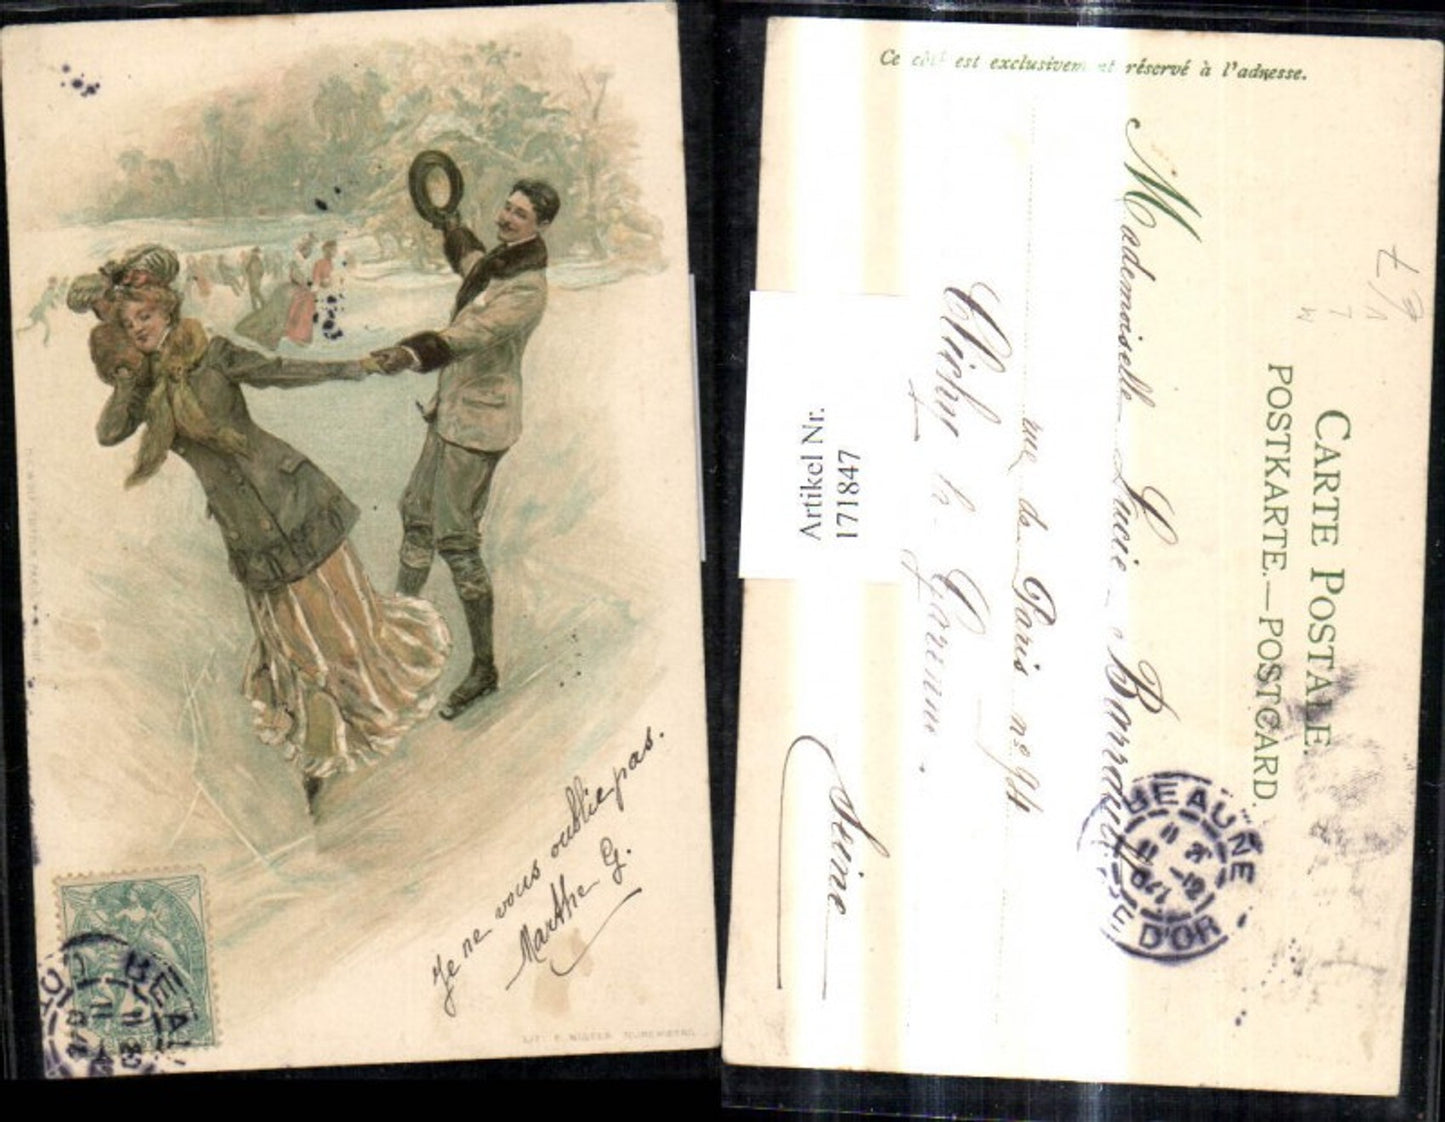 Je ne vous oublie pas.
Marthe G.
LIT. E. NISTER NUREMBERG
BEA
11
04
Ce côté est exclusivement réservé à l'adresse.
CARTE POSTALE.
POSTKARTE.—POSTCARD.
Mademoiselle Lucie
rue de Paris nº 94
Clichy la Garenne.
Seine
BEAUNE
CÔTE D'OR
Artikel Nr.
171847